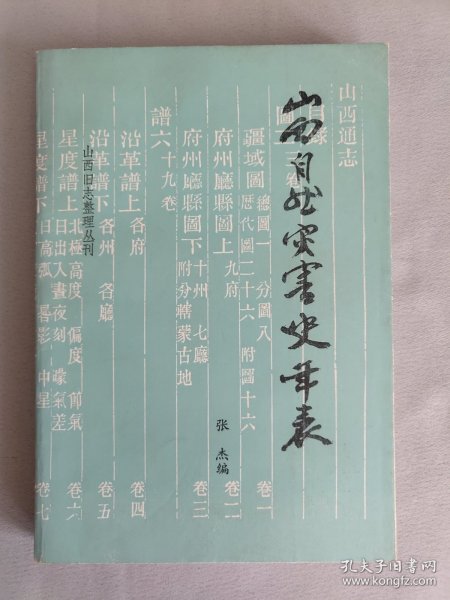 山西自然灾害史年表
张 杰编
山西旧志整理丛刊
山西通志
目錄
疆域圖 總圖一 分圖八 歷代圖二十六 附圖十六 卷一
府州廳縣圖上 九府 卷二
府州廳縣圖下 十州 七廳 附分轄蒙古地 卷三
譜六 十九卷
沿革譜上 各府 卷四
沿革譜下 各州 各廳 卷五
星度譜上 北極高度 偏度 節氣 日出入晝夜刻 濛氣差 卷六
星度譜下 日高弧 晷影 中星 卷七
孔夫子旧书网
www.kongfz.com